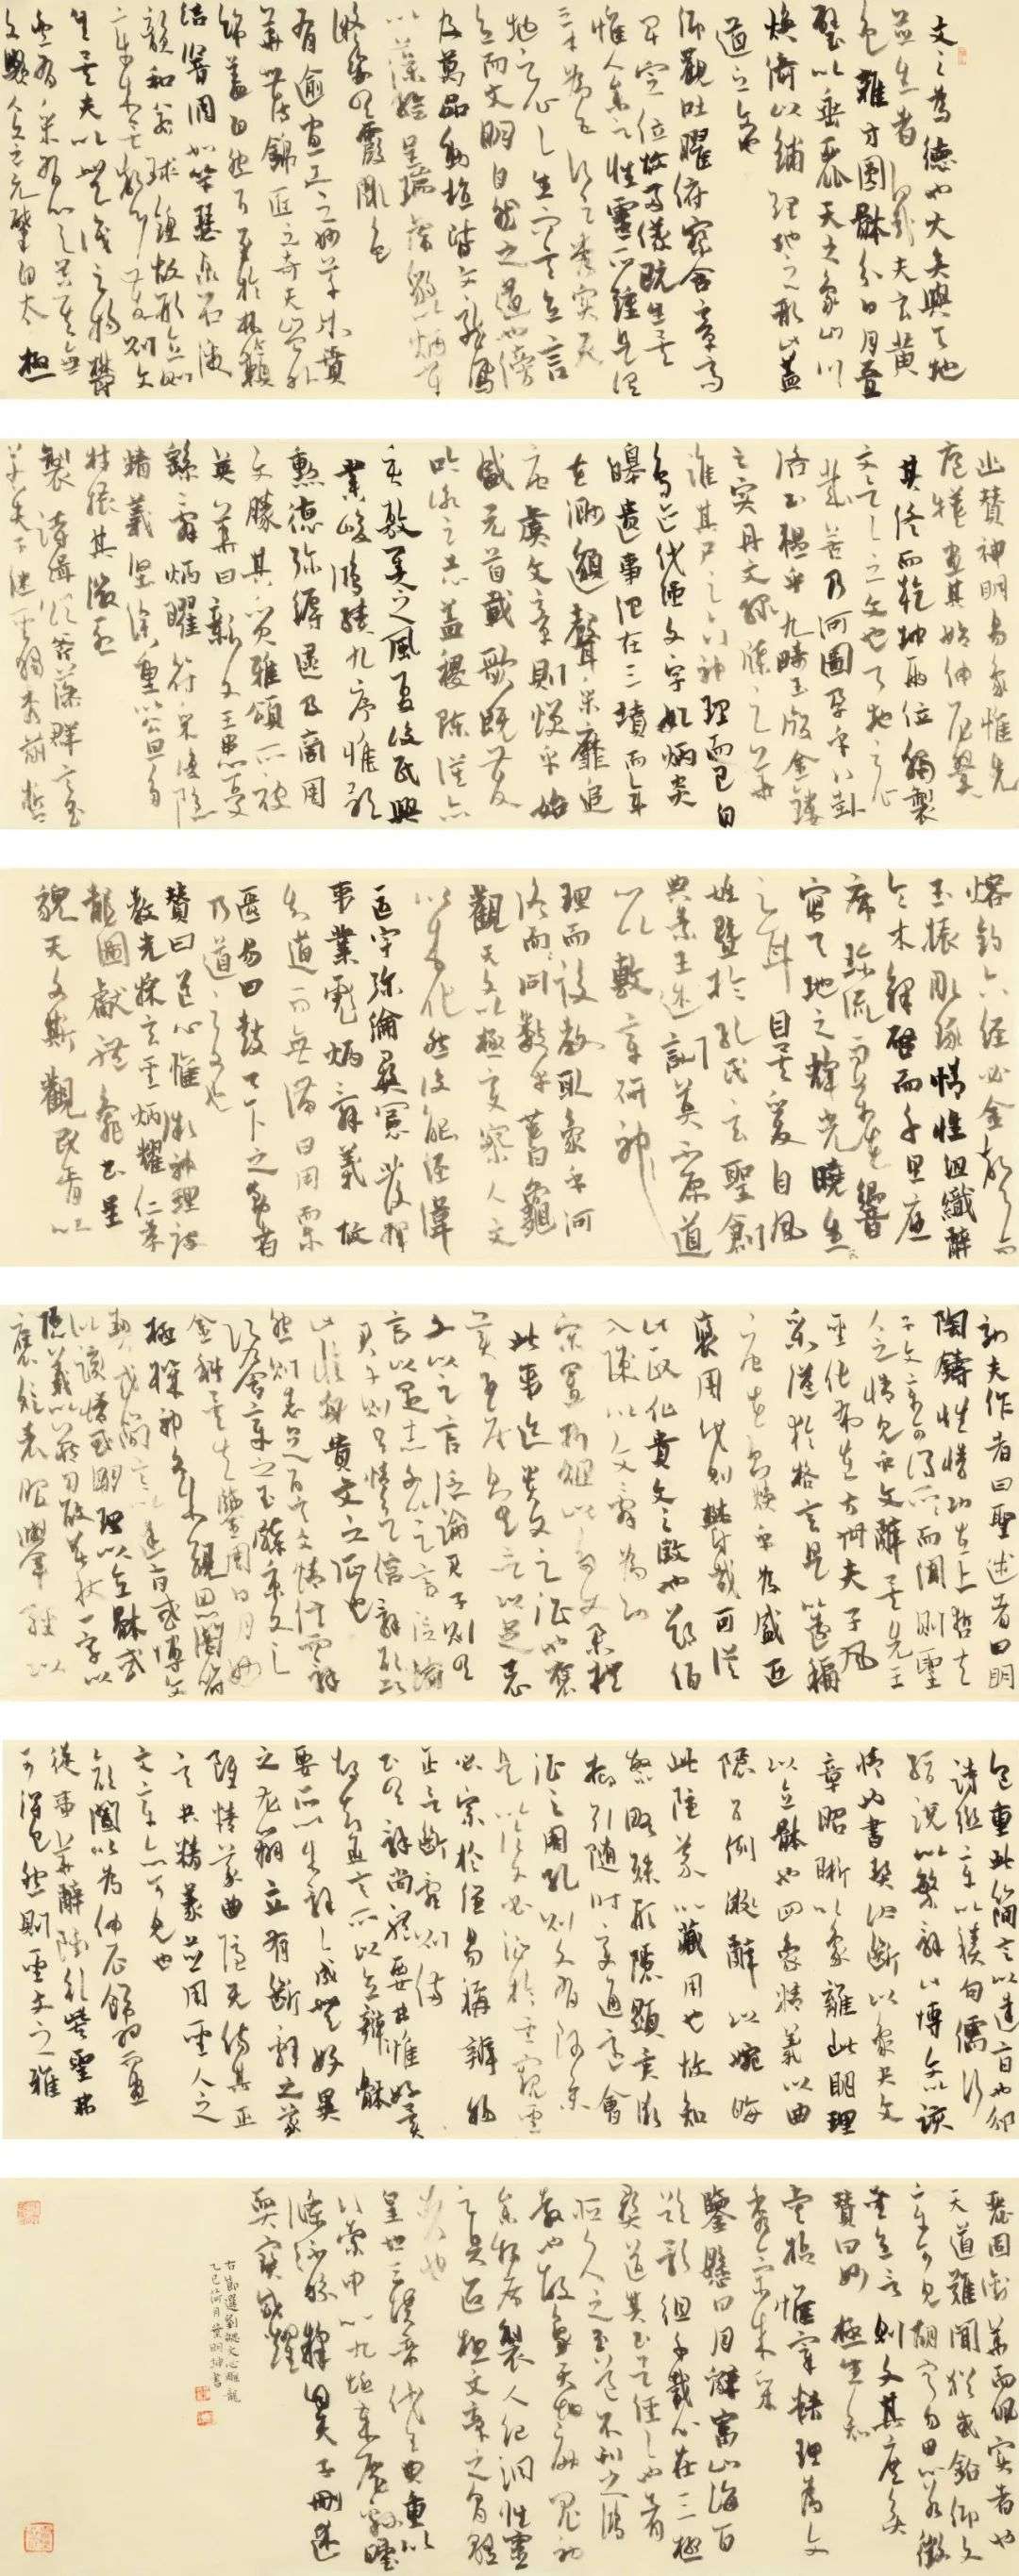 文之為德也大矣與天地
並生者何哉夫玄黃
色雜方圓體分日月疊
璧以垂麗天之象山川
煥綺以鋪理地之形此蓋
道之文也
仰觀吐曜俯察含章高
卑定位故兩儀既生矣
惟人參之性靈所鍾是謂
三才為五行之秀實天
地之心心生而言立言
立而文明自然之道也傍
及萬品動植皆文龍鳳
以藻繪呈瑞虎豹以炳蔚
凝姿雲霞雕色
有逾畫工之妙草木賁
華無待錦匠之奇夫豈外
飾蓋自然耳至於林籟
結響調如竽瑟泉石激
韻和若球鍠故形立則
章成矣聲發則文
生矣夫以無識之物鬱
然有采有心之器其無
文歟人文之元肇自太極
幽贊神明易象惟先
庖犧畫其始仲尼翼
其終而乾坤兩位獨製
文言言之文也天地之心
哉若乃河圖孕乎八卦
洛書韞乎九疇玉版金鏤
之實丹文綠牒之華
誰其尸之亦神理而已自
鳥跡代繩文字始炳炎
皞遺事紀在三墳而年
世渺邈聲采靡追
唐虞文章則煥乎始
盛元首載歌既發
吟詠之志益稷陳謨亦
垂敷奏之風夏后氏興
業峻鴻績九序惟歌
勳德彌縟逮及商周
文勝其質雅頌所被
英華日新文王患憂
繇辭炳曜符采複隱
精義堅深重以公旦多
材振其徽烈
製詩緝頌斧藻群言至
若夫子繼聖獨秀前哲
熔鈞六經必金聲而
玉振雕琢情性組織辭
令木鐸啓而千里應
席珍流而萬世響
寫天地之輝光曉生
民之耳目矣爰自風
姓暨於孔氏玄聖創
典素王述訓莫不原道
心以敷章研神
理而設教取象乎河
洛問數乎蓍龜
觀天文以極變察人文
以成化然後能經緯
區宇彌綸彝憲發揮
事業彪炳辭義故
知道而無滯日用而不
匱易曰鼓天下之動者
乃道之文也
贊曰道心惟微神理設
教光採玄聖炳耀仁孝
龍圖獻體龜書呈
貌天文斯觀民胥以
夫作者曰聖述者曰明
陶鑄性情功在上哲夫
子文章可得而聞則聖
人之情見乎文辭矣先王
聖化布在方冊夫子風
采溢於格言是以遠稱
唐世則煥乎為盛近
褒周代則郁哉可從
此政化貴文之徵也鄭伯
入陳以文辭為功
宋置折俎以多文舉禮
此事跡貴文之徵也褒
美子產則云言以足志
文以足言泛論君子則曰
言以足志文以足言泛論
君子則曰情欲信辭欲巧
此修身貴文之徵也
然則志足而言文情信而辭
巧乃含章之玉牒秉文之
金科矣夫鑒周日月妙
極機神文成規矩思合符
契或簡言以達旨或博文
以該情或明理以立體或
隱義以藏用故春秋一字以
褒貶喪服舉輕以
包重此簡言以達旨也邠
詩聯章以積句儒行
縟說以繁辭此博文以該
情也書契決斷以象夬文
章昭晰以象離此明理
以立體也四象精義以曲
隱五例微辭以婉晦
此隱義以藏用也故知
繁略殊形隱顯異術
抑引隨時變通適會
徵之周孔則文有師矣
是以論文必徵於聖窺聖
必宗於經易稱辨物
正言斷辭則備
書云辭尚體要弗惟好異
故知正言所以立辯體
要所以成辭辭成無好異
之尤辯立有斷辭之義
雖精義曲隱無傷其正
言共精義並用聖人之
文章亦可見也
顏闔以為仲尼飾羽而畫
從事華辭雖欲訾聖弗
可得已然則聖文之雅
麗固銜華而佩實者也
天道難聞猶或鉆仰文
章可見胡寧勿思若徵
聖立言則文其庶矣
贊曰妙極生知
睿哲惟宰精理為文
秀氣成采
鑒懸日月辭富山海百
齡影徂千載心在三極
彝道其書言經經也者
恒久之至道不刊之鴻
教也故象天地效鬼神
參物序製人紀洞性靈
之奧區極文章之骨髓
者也
皇世三墳帝代五典重以
八索申以九丘歲歷綿曖
條流紛糅自夫子刪述
寶咸耀
右節選劉勰文心雕龍
乙巳荷月葉明書